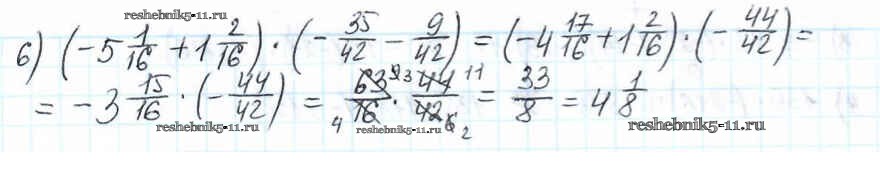 reshebnik5-11.ru
6) (-5 1/16 + 1 2/16) · (- 35/42 - 9/42) = (-4 17/16 + 1 2/16) · (- 44/42) =
= -3 15/16 · (- 44/42) = 63/16 · 44/42 = 33/8 = 4 1/8
reshebnik5-11.ru reshebnik5-11.ru